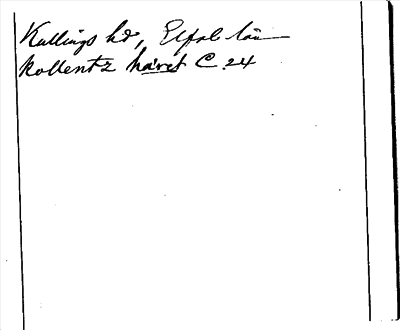 Kullings hd, Elfsb. län
Kollentz häret C. 24